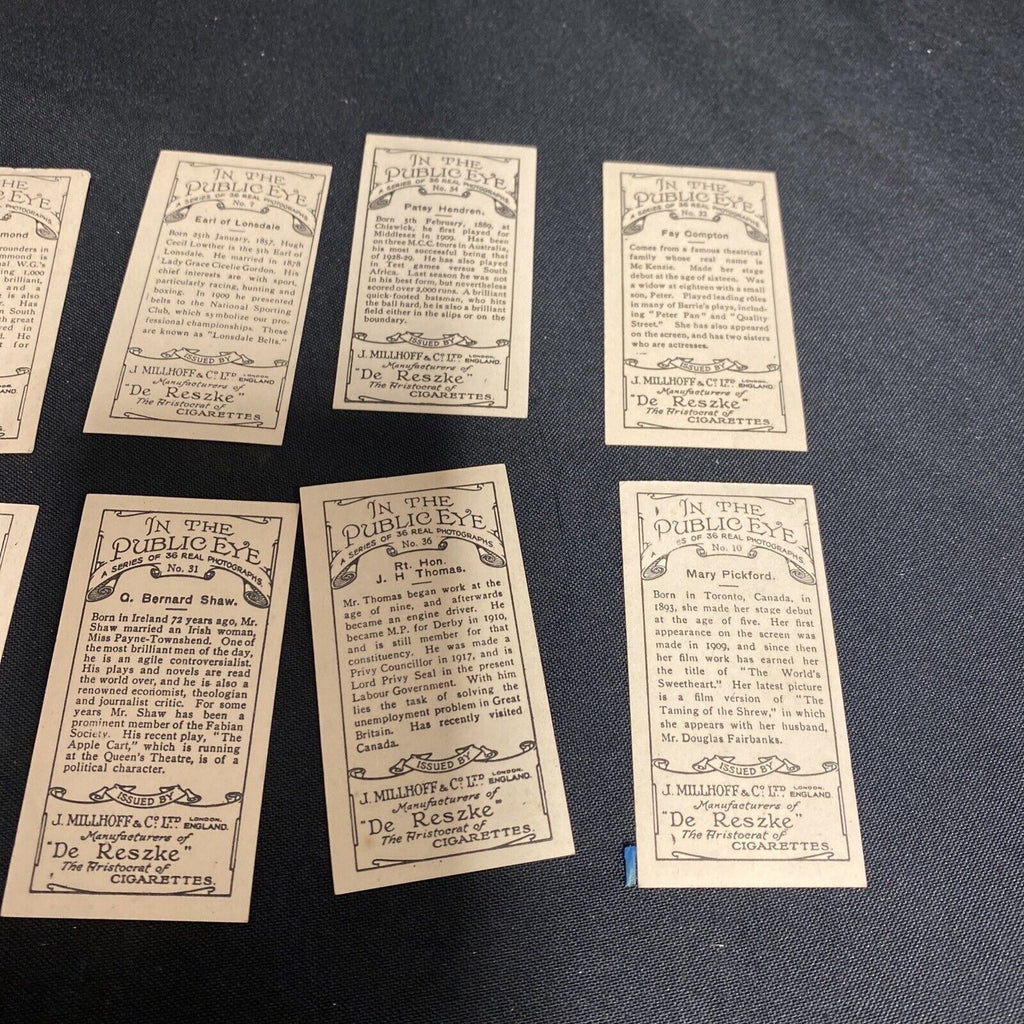 HE
C EYE
PHOTOGRAPHS.
mond
rounders in
mmond is
al W.G.'s
ing 1,000
brilliant,
and
is also
r. Has
n South
th great
ved in
He
t for
AND
IN THE
PUBLIC EYE
A SERIES OF 36 REAL PHOTOGRAPHS.
No. 7
Earl of Lonsdale
Born 25th January, 1857, Hugh
Cecil Lowther is the 5th Earl of
Lonsdale. He married in 1878
Lady Grace Cicelie Gordon. His
chief interests are with sport,
particularly racing, hunting and
boxing. In 1909 he presented
belts to the National Sporting
Club, which symbolize our pro-
fessional championships. These
are known as "Lonsdale Belts."
ISSUED BY
J. MILLHOFF & CO. LTD LONDON. ENGLAND
Manufacturers of
"De Reszke"
The Aristocrat of
CIGARETTES.
IN THE
PUBLIC EYE
A SERIES OF 36 REAL PHOTOGRAPHS.
No. 54
Patsy Hendren.
Born 5th February, 1889, at
Chiswick, he first played for
Middlesex in 1909. Has been
on three M.C.C. tours in Australia,
his most successful being that
of 1928-29. He has also played
in Test games versus South
Africa. Last season he was not
in his best form, but nevertheless
scored over 2,000 runs. A brilliant
quick-footed batsman, who hits
the ball hard, he is also a brilliant
field either in the slips or on the
boundary.
ISSUED BY
J. MILLHOFF & CO. LTD LONDON. ENGLAND.
Manufacturers of
"De Reszke"
The Aristocrat of
CIGARETTES.
IN THE
PUBLIC EYE
A SERIES OF 36 REAL PHOTOGRAPHS.
Fay Compton
Comes from a famous theatrical
family whose real name is
Mc Kenzie. Made her stage
debut at the age of sixteen. Was
a widow at eighteen with a small
son, Peter. Played leading rôles
in many of Barrie's plays, includ-
ing "Peter Pan" and "Quality
Street." She has also appeared
on the screen, and has two sisters
who are actresses.
ISSUED BY
J. MILLHOFF & CO. LTD LONDON. ENGLAND.
Manufacturers of
"De Reszke"
The Aristocrat of
CIGARETTES.
IN THE
PUBLIC EYE
A SERIES OF 36 REAL PHOTOGRAPHS.
No. 31
G. Bernard Shaw.
Born in Ireland 72 years ago, Mr.
Shaw married an Irish woman,
Miss Payne-Townshend. One of
the most brilliant men of the day,
he is an agile controversialist.
His plays and novels are read
the world over, and he is also a
renowned economist, theologian
and journalist critic. For some
years Mr. Shaw has been a
prominent member of the Fabian
Society. His recent play, "The
Apple Cart," which is running
at the Queen's Theatre, is of a
political character.
ISSUED BY
J. MILLHOFF & CO. LTD LONDON. ENGLAND.
Manufacturers of
"De Reszke"
The Aristocrat of
CIGARETTES.
IN THE
PUBLIC EYE
A SERIES OF 36 REAL PHOTOGRAPHS.
No. 36
Rt. Hon.
J. H Thomas.
Mr. Thomas began work at the
age of nine, and afterwards
became an engine driver. He
became M.P. for Derby in 1910,
and is still member for that
constituency. He was made a
Privy Councillor in 1917, and is
Lord Privy Seal in the present
Labour Government. With him
lies the task of solving the
unemployment problem in Great
Britain. Has recently visited
Canada.
ISSUED BY
J. MILLHOFF & CO. LTD LONDON. ENGLAND.
Manufacturers of
"De Reszke"
The Aristocrat of
CIGARETTES.
IN THE
PUBLIC EYE
A ES OF 36 REAL PHOTOGRAPHS.
No. 10
Mary Pickford.
Born in Toronto, Canada, in
1893, she made her stage debut
at the age of five. Her first
appearance on the screen was
made in 1909, and since then
her film work has earned her
the title of "The World's
Sweetheart." Her latest picture
is a film version of "The
Taming of the Shrew," in which
she appears with her husband,
Mr. Douglas Fairbanks.
ISSUED BY
J. MILLHOFF & CO. LTD LONDON. ENGLAND.
Manufacturers of
"De Reszke"
The Aristocrat of
CIGARETTES.